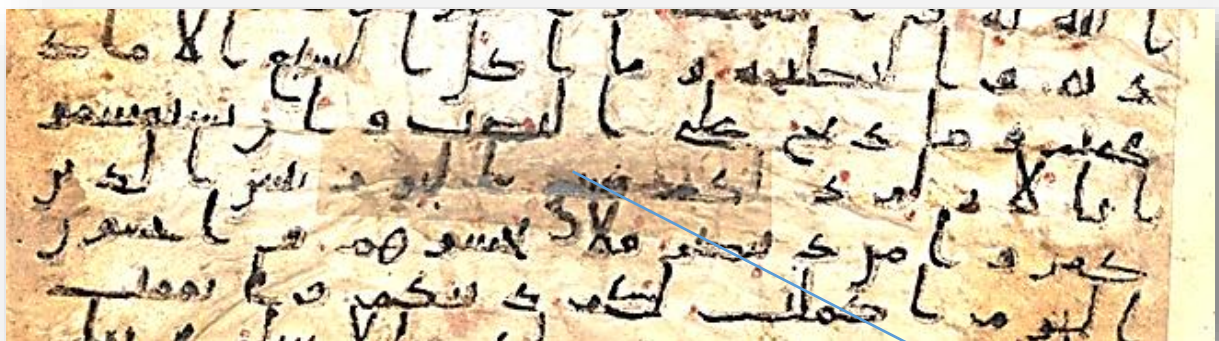 ديه والنطيحه وما اكل السبع الا ما ذ
كيتم وما ذبح على النصب وان تستقسمو
ا بالازلم ذلكم فسق اليوم يئس الذين
كفروا من دينكم فلا تخشوهم واخشون
اليوم اكملت لكم دينكم واتممت